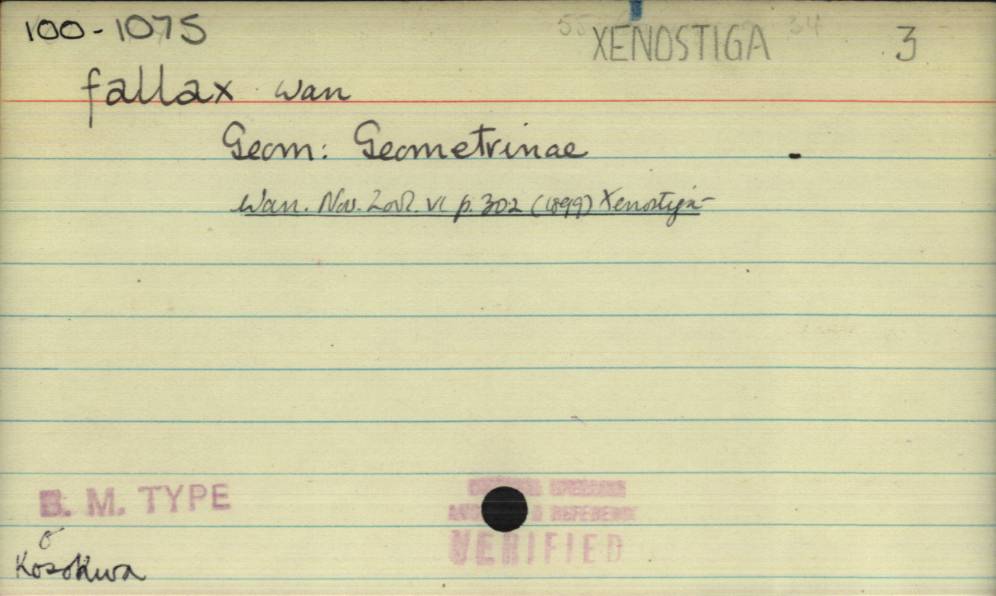 100-1075
XENOSTIGA 3
fallax Wan
Geom: Geometrinae
Warr. Nov. Zool. VI p. 302 (1899) Xenostiga
B. M. TYPE
♂
Kosokwa
AND REFERENCE
VERIFIED